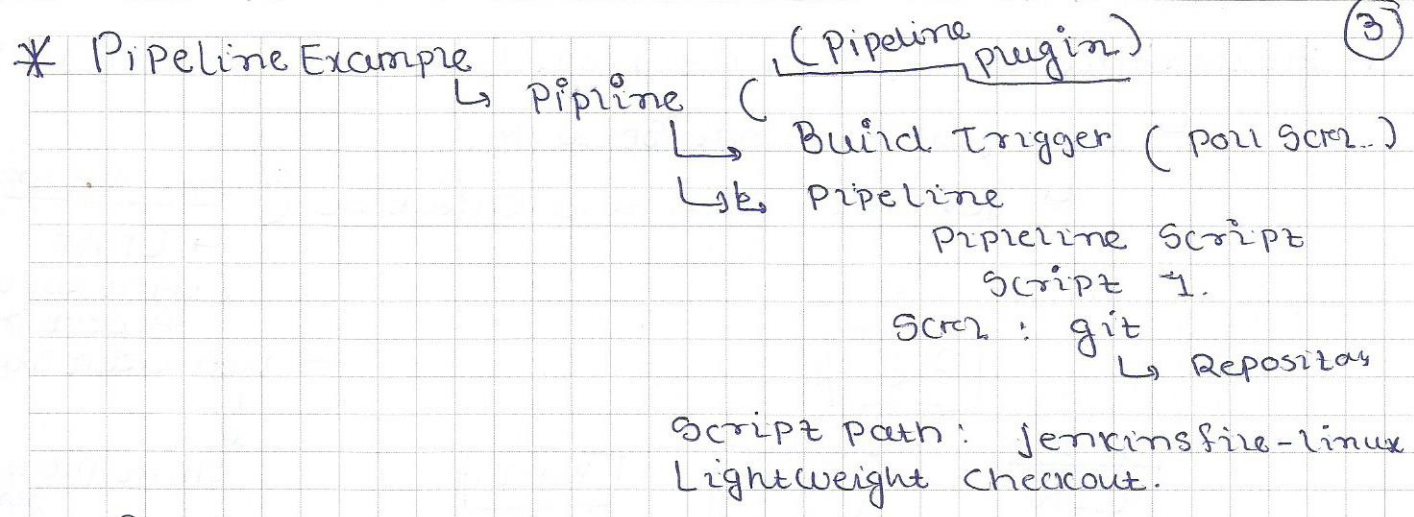 3
* Pipeline Example
(Pipeline plugin)
↳ Pipline (
↳ Build Trigger ( Poll Scm..)
↳ Pipeline
Pipleline Script
Script 1.
Scm : git
↳ Repository
Script path : Jenkinsfile-linux
Lightweight checkout.